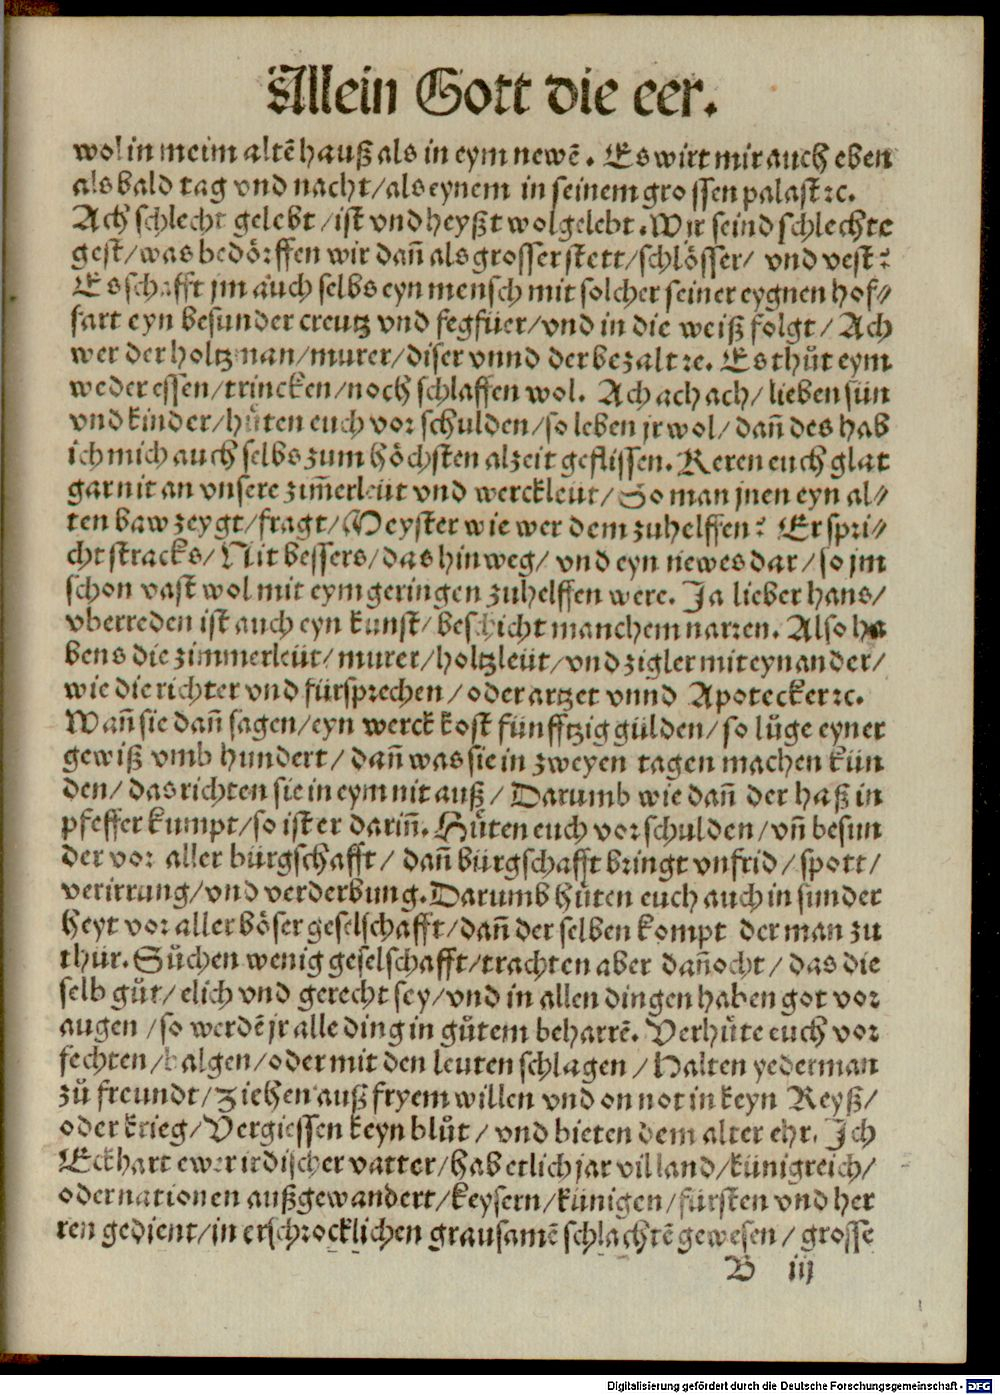 Allein Gott die eer.
wol in meim altē hauß als in eym newē. Es wirt mir auch eben
als bald tag vnd nacht/als eynem in seinem grossen palast ꝛc.
Ach schlecht gelebt/ist vnd heyßt wol gelebt. Wir seind schlechte
gest/was bedörffen wir dañ als grosser stett/schlösser/ vnd vest?
Es schafft jm auch selbs eyn mensch mit solcher seiner eygnen hof⸗
fart eyn besunder creutz vnd fegfüer/vnd in die weiß folgt/ Ach
wer der holtzman/murer/diser vnnd der bezalt ꝛc. Es thůt eym
weder essen/trincken/noch schlaffen wol. Ach ach ach/ lieben sün
vnd kinder/hůten euch vor schulden/so leben jr wol/ dañ des hab
ich mich auch selbs zum höchsten alzeit geflissen. Keren euch glat
gar nit an vnsere zim̃erleüt vnd werckleüt/ So man jnen eyn al⸗
ten baw zeygt/fragt/Meyster wie wer dem zuhelffen? Er spri⸗
cht stracks/ Nit bessers/das hinweg/ vnd eyn newes dar/so jm
schon vast wol mit eym geringen zuhelffen were. Ja lieber hans/
vberreden ist auch eyn kunst/beschicht manchem narren. Also ha
bens die zimmerleüt/murer/holtzleüt/vnd zigler mit eynander/
wie die richter vnd fürsprechen/oder artzet vnnd Apotecker ꝛc.
Wañ sie dañ sagen/eyn werck kost fünfftzig gülden/so lůge eyner
gewiß vmb hundert/ dañ was sie in zweyen tagen machen kün
den/das richten sie in eym nit auß/ Darumb wie dañ der haß in
pfeffer kumpt/so ist er dariñ. Hůten euch vor schulden/vñ besun
der vor aller bürgschafft/ dañ bürgschafft bringt vnfrid/spott/
verirrung/vnd verderbung. Darumb hůten euch auch in sunder
heyt vor aller böser geselschafft/dañ der selben kompt der man zu
thür. Sůchen wenig geselschafft/trachten aber dañocht/das die
selb gůt/elich vnd gerecht sey/vnd in allen dingen haben got vor
augen/so werdē jr alle ding in gůtem beharrē. Verhůte euch vor
fechten/balgen/oder mit den leuten schlagen/Halten yederman
zů freundt/Ziehen auß fryem willen vnd on not in keyn Reyß/
oder krieg/Vergiessen keyn blůt/ vnd bieten dem alter ehr. Ich
Eckhart ewer irdischer vatter/hab etlich jar vil land/künigreich/
oder nationen außgewandert/keysern/künigen/fürsten vnd her
ren gedient/in erschrocklichen grausamē schlachtē gewesen/ grosse
B iij
Digitalisierung gefördert durch die Deutsche Forschungsgemeinschaft - DFG